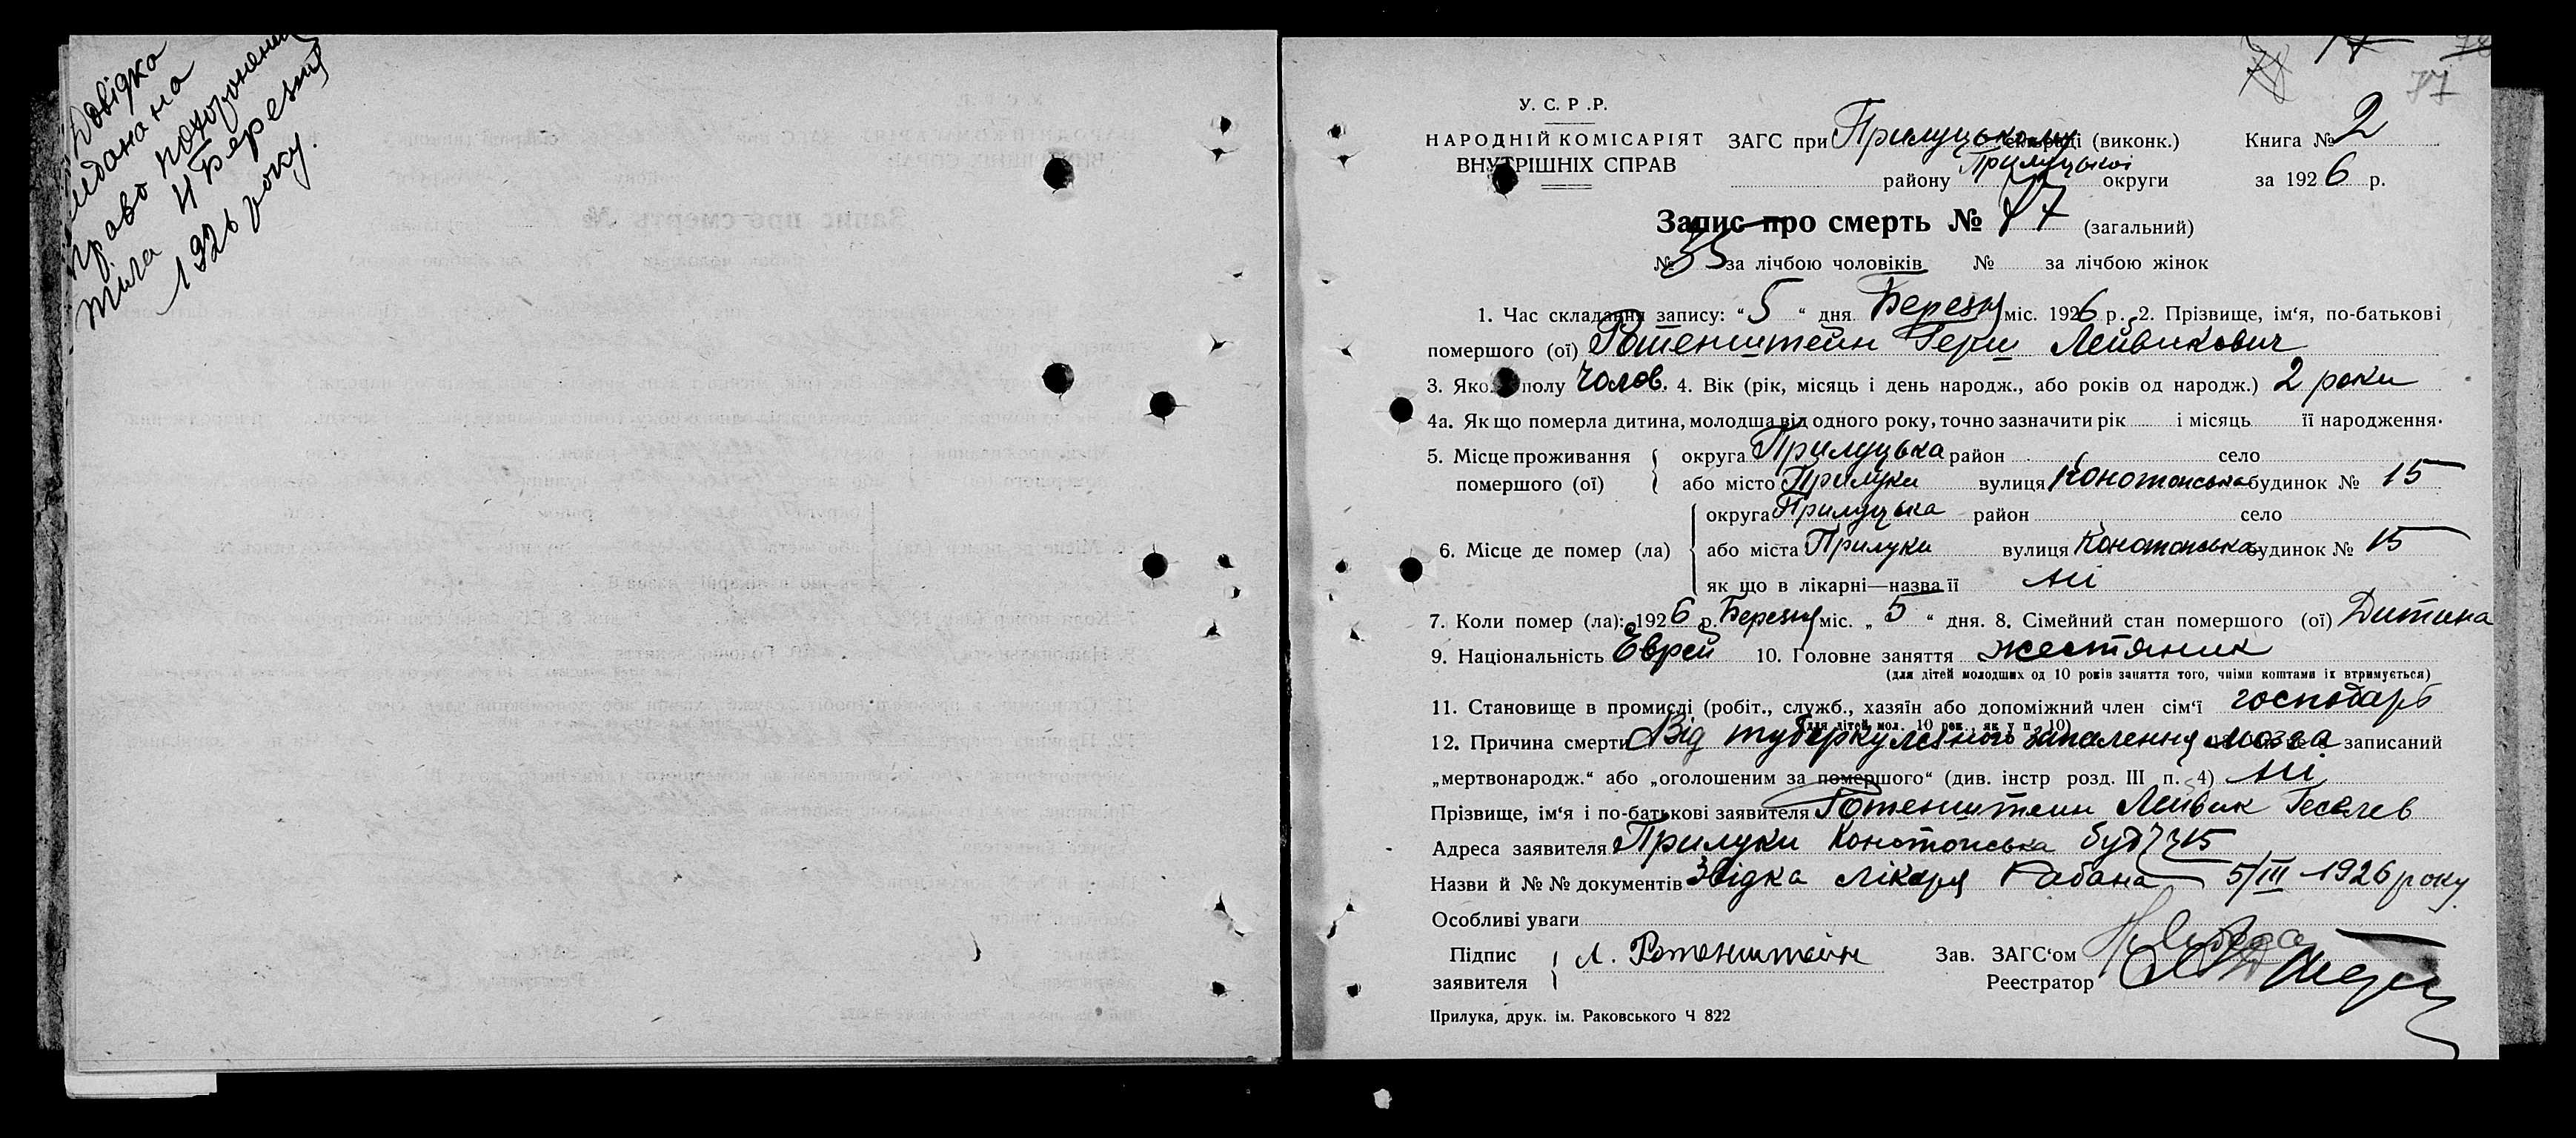 Довідка
видана на
право похоронення
тила 4 Березня
1926 року.
77
У. С. Р. Р.
НАРОДНІЙ КОМІСАРІЯТ
ВНУТРІШНІХ СПРАВ
ЗАГС при Прилуцькому (виконк.) Книга № 2
району Прилуцької округи за 1926 р.
Запис про смерть № 77 (загальний)
№ 35 за лічбою чоловіків № за лічбою жінок
1. Час складання запису: “5“ дня Березня міс. 1926 р. 2. Прізвище, ім‘я, по-батькові
помершого (ої) Ротенштейн Герш Лейвикович
3. Якого полу Чолов. 4. Вік (рік, місяць і день народж., або років од народж.) 2 роки
4а. Як що померла дитина, молодша від одного року, точно зазначити рік і місяць її народження.
5. Місце проживання помершого (ої) округа Прилуцька район село
або місто Прилуки вулиця Конотопська будинок № 15
округа Прилуцька район село
6. Місце де помер (ла) або міста Прилуки вулиця Конотопська будинок № 15
як що в лікарні—назва її ні
7. Коли помер (ла): 1926 р. Березня міс. „5“ дня. 8. Сімейний стан помершого (ої) Дитина
9. Національність Єврей 10. Головне заняття жестяник
(для дітей молодших од 10 років заняття того, чиїми коштами їх втримується)
11. Становище в промислі (робіт., служб., хазяїн або допоміжний член сім‘ї господарь
(для дітей мол. 10 рок., як у п. 10)
12. Причина смерти Від туберкулезного запалення мозга записаний
„мертвонародж.“ або „оголошеним за помершого“ (див. інстр розд. III п. 4) ні
Прізвище, ім‘я і по-батькові заявителя Ротенштейн Лейвик Геселев
Адреса заявителя Прилуки Конотопська буд 15
Назви й №№ документів Звідка лікаря Рабана 5/III 1926 року
Особливі уваги
Підпис заявителя Л. Ротенштейн Зав. ЗАГС‘ом
Реестратор
Прилука, друк. ім. Раковського Ч 822